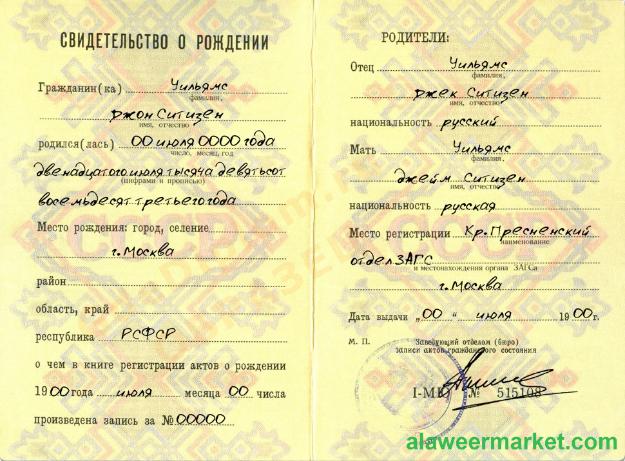 СВИДЕТЕЛЬСТВО О РОЖДЕНИИ
Гражданин(ка) Уильямс
фамилия,
Джон Ситизен
имя, отчество
родился(лась) 00 июля 0000 года
число, месяц, год
двенадцатого июля тысяча девятьсот
(цифрами и прописью)
восемьдесят третьего года
Место рождения: город, селение
г. Москва
район
область, край
республика РСФСР
о чем в книге регистрации актов о рождении
1900 года июля месяца 00 числа
произведена запись за № 00000
РОДИТЕЛИ:
Отец Уильямс
фамилия,
Джек Ситизен
имя, отчество
национальность русский
Мать Уильямс
фамилия,
Джейм Ситизен
имя, отчество
национальность русская
Место регистрации Кр. Пресненский
наименование
отдел ЗАГС
и местонахождения органа ЗАГСа
г. Москва
Дата выдачи „00" июля 1900 г.
М. П. Заведующий отделом (бюро)
записи актов гражданского состояния
I-МЮ № 515108
alaweermarket.com